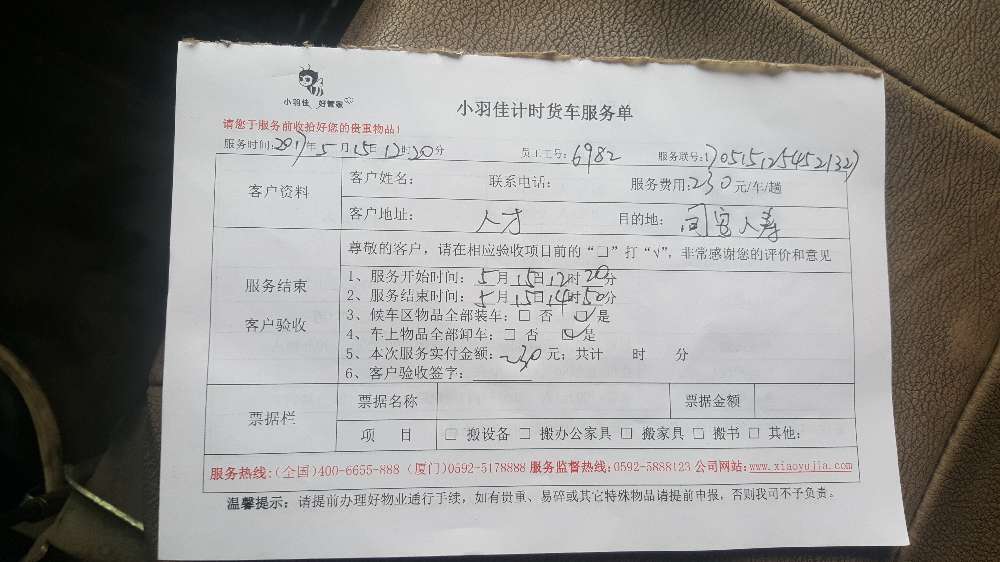 小羽佳 好管家
小羽佳计时货车服务单
请您于服务前收拾好您的贵重物品！
服务时间:2017年5月15日12时20分 员工工号:6982 服务联号:17051512545213227
客户资料 客户姓名: 联系电话: 服务费用:230元/车/趟
客户地址: 人才 目的地: 同安人寿
服务结束
客户验收
尊敬的客户，请在相应验收项目前的“□”打“√”，非常感谢您的评价和意见
1、服务开始时间：5月15日12时20分
2、服务结束时间：5月15日14时50分
3、候车区物品全部装车：□ 否 ☑ 是
4、车上物品全部卸车：□ 否 ☑ 是
5、本次服务实付金额：230元；共计 时 分
6、客户验收签字：
票据栏 票据名称 票据金额
项 目 □ 搬设备 □ 搬办公家具 □ 搬家具 □ 搬书 □ 其他:
服务热线:(全国)400-6655-888 (厦门)0592-5178888 服务监督热线:0592-5888123 公司网站:www.xiaoyujia.com
温馨提示：请提前办理好物业通行手续，如有贵重、易碎或其它特殊物品请提前申报，否则我司不予负责。